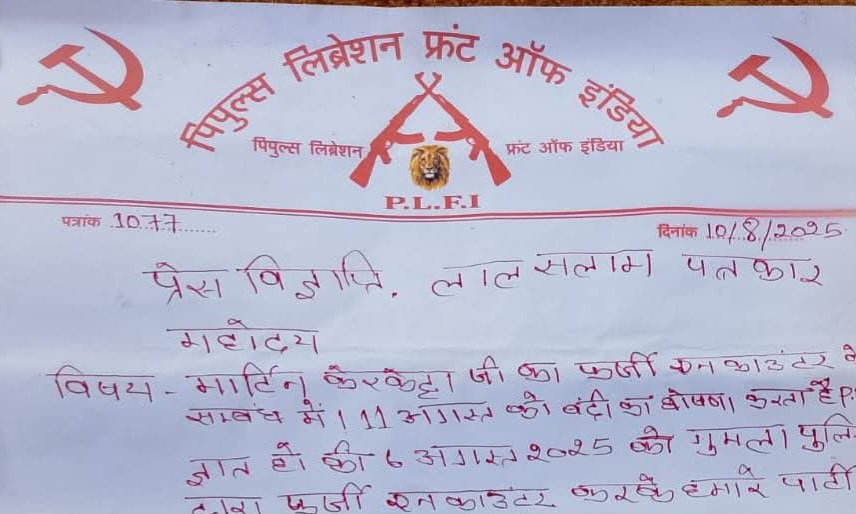 पिपुल्स लिब्रेशन फ्रंट ऑफ इंडिया
पिपुल्स लिब्रेशन फ्रंट ऑफ इंडिया
P.L.F.I
पत्रांक 1077 दिनांक 10/8/2025
प्रेस विज्ञाप्ति. लाल सलाम पत्रकार
महोदय
विषय - मार्टिन केरकेट्टा जी का फर्जी एनकाउंटर के
सम्बंध में। 11 अगस्त को बंदी का घोषणा करता है
ज्ञात हो की 6 अगस्त 2025 को गुमला
द्वारा फर्जी एनकाउंटर करके हमारे पार्टी